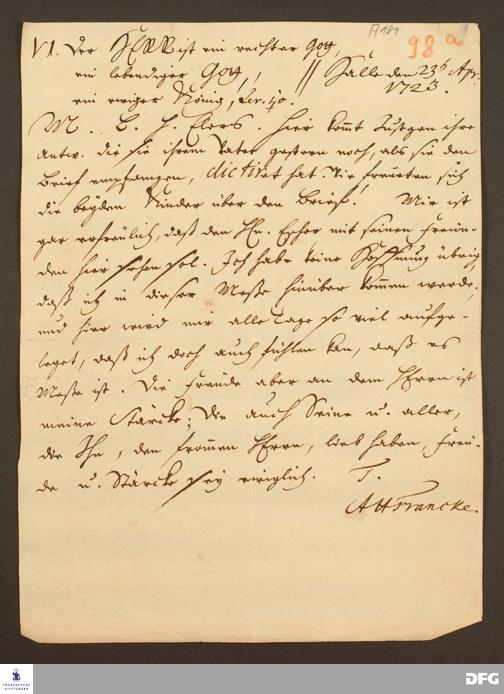 A 181
98 a
VI. Der HERR ist ein rechter Gott,
ein lebendiger Gott, // Halle den 23t Apr.
ein ewiger König, Jer. 10. 1723.
M. L. H. Elers. Hier komt Justgen ihre
antw. die sie ihrem Vater gestern noch, als sie den
Brief empfangen, dictiret hat. Sie freueten sich
die beyden Kinder über den Brief. Mir ist
gar erfreulich, daß den Hn. Escher mit seinen Freun-
den hier sehen sol. Ich habe keine Hoffnung übrig
daß ich in dieser Meße hinüber kommen werde,
und hier wird mir alle Tage so viel aufge-
leget, daß ich doch auch fühlen kan, daß es
Meße ist. Die Freude aber an dem HErrn ist
meine Stärcke; die auch Seine u. aller,
die Ihn, den frommen HErrn, lieb haben, Freu-
de u. Stärcke sey ewiglich. T.
AHFrancke.
FRANCKESCHE
STIFTUNGEN
DFG